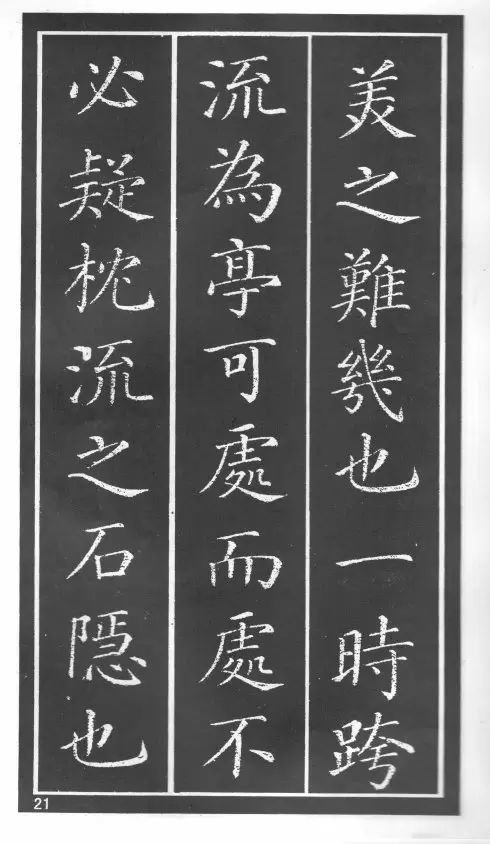 美之難幾也一時跨
流為亭可處而處不
必疑枕流之石隠也
21